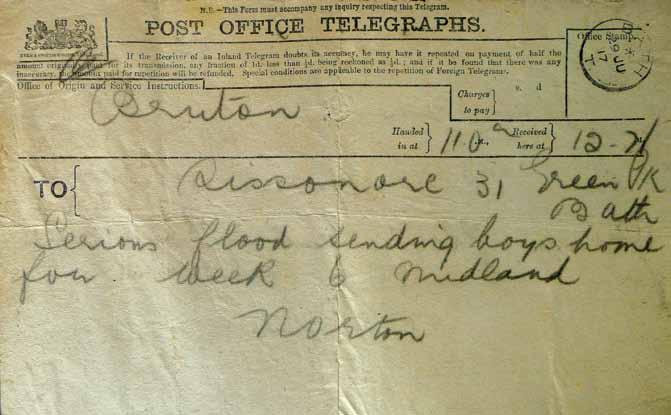 N.B.—This Form must accompany any inquiry respecting this Telegram.
POST OFFICE TELEGRAPHS.
If the Receiver of an Inland Telegram doubts its accuracy, he may have it repeated on payment of half the
amount originally paid for its transmission, any fraction of 1d. less than ½d. being reckoned as ½d.; and if it be found that there was any
inaccuracy, the amount paid for repetition will be refunded. Special conditions are applicable to the repetition of Foreign Telegrams.
Office Stamp.
BATH
29 JU
17
Office of Origin and Service Instructions.
Bruton
Charges to pay
s. d
Handed in at
11.0 a
Received here at
12-21
TO
31 Green Pk
Bath
Serious flood sending boys home
for week 6 Midland
Norton